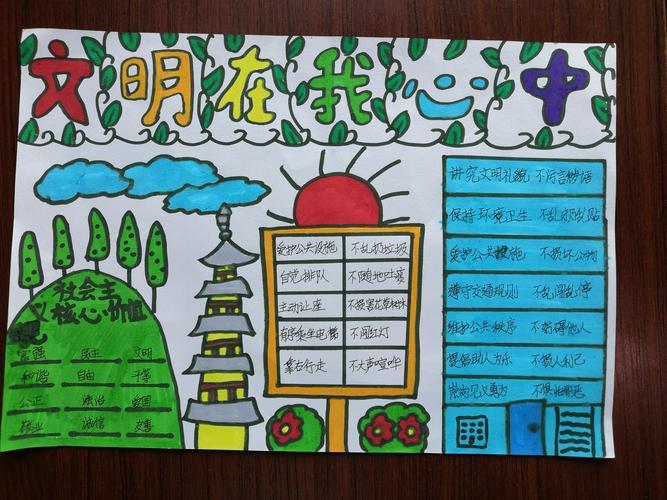 文明在我心中
社会主
义核心价值
观
富强 民主 文明
和谐 自由 平等
公正 法治 爱国
敬业 诚信 友善
爱护公共设施 不乱扔垃圾
自觉排队 不随地吐痰
主动让座 不损害花草树木
有序乘坐电梯 不闯红灯
靠右行走 不大声喧哗
讲究文明礼貌 不污言秽语
保持环境卫生 不乱扔乱贴
爱护公共设施 不损坏公物
遵守交通规则 不乱闯乱停
维护公共秩序 不妨碍他人
提倡助人为乐 不损人利己
崇尚见义勇为 不惧怕邪恶